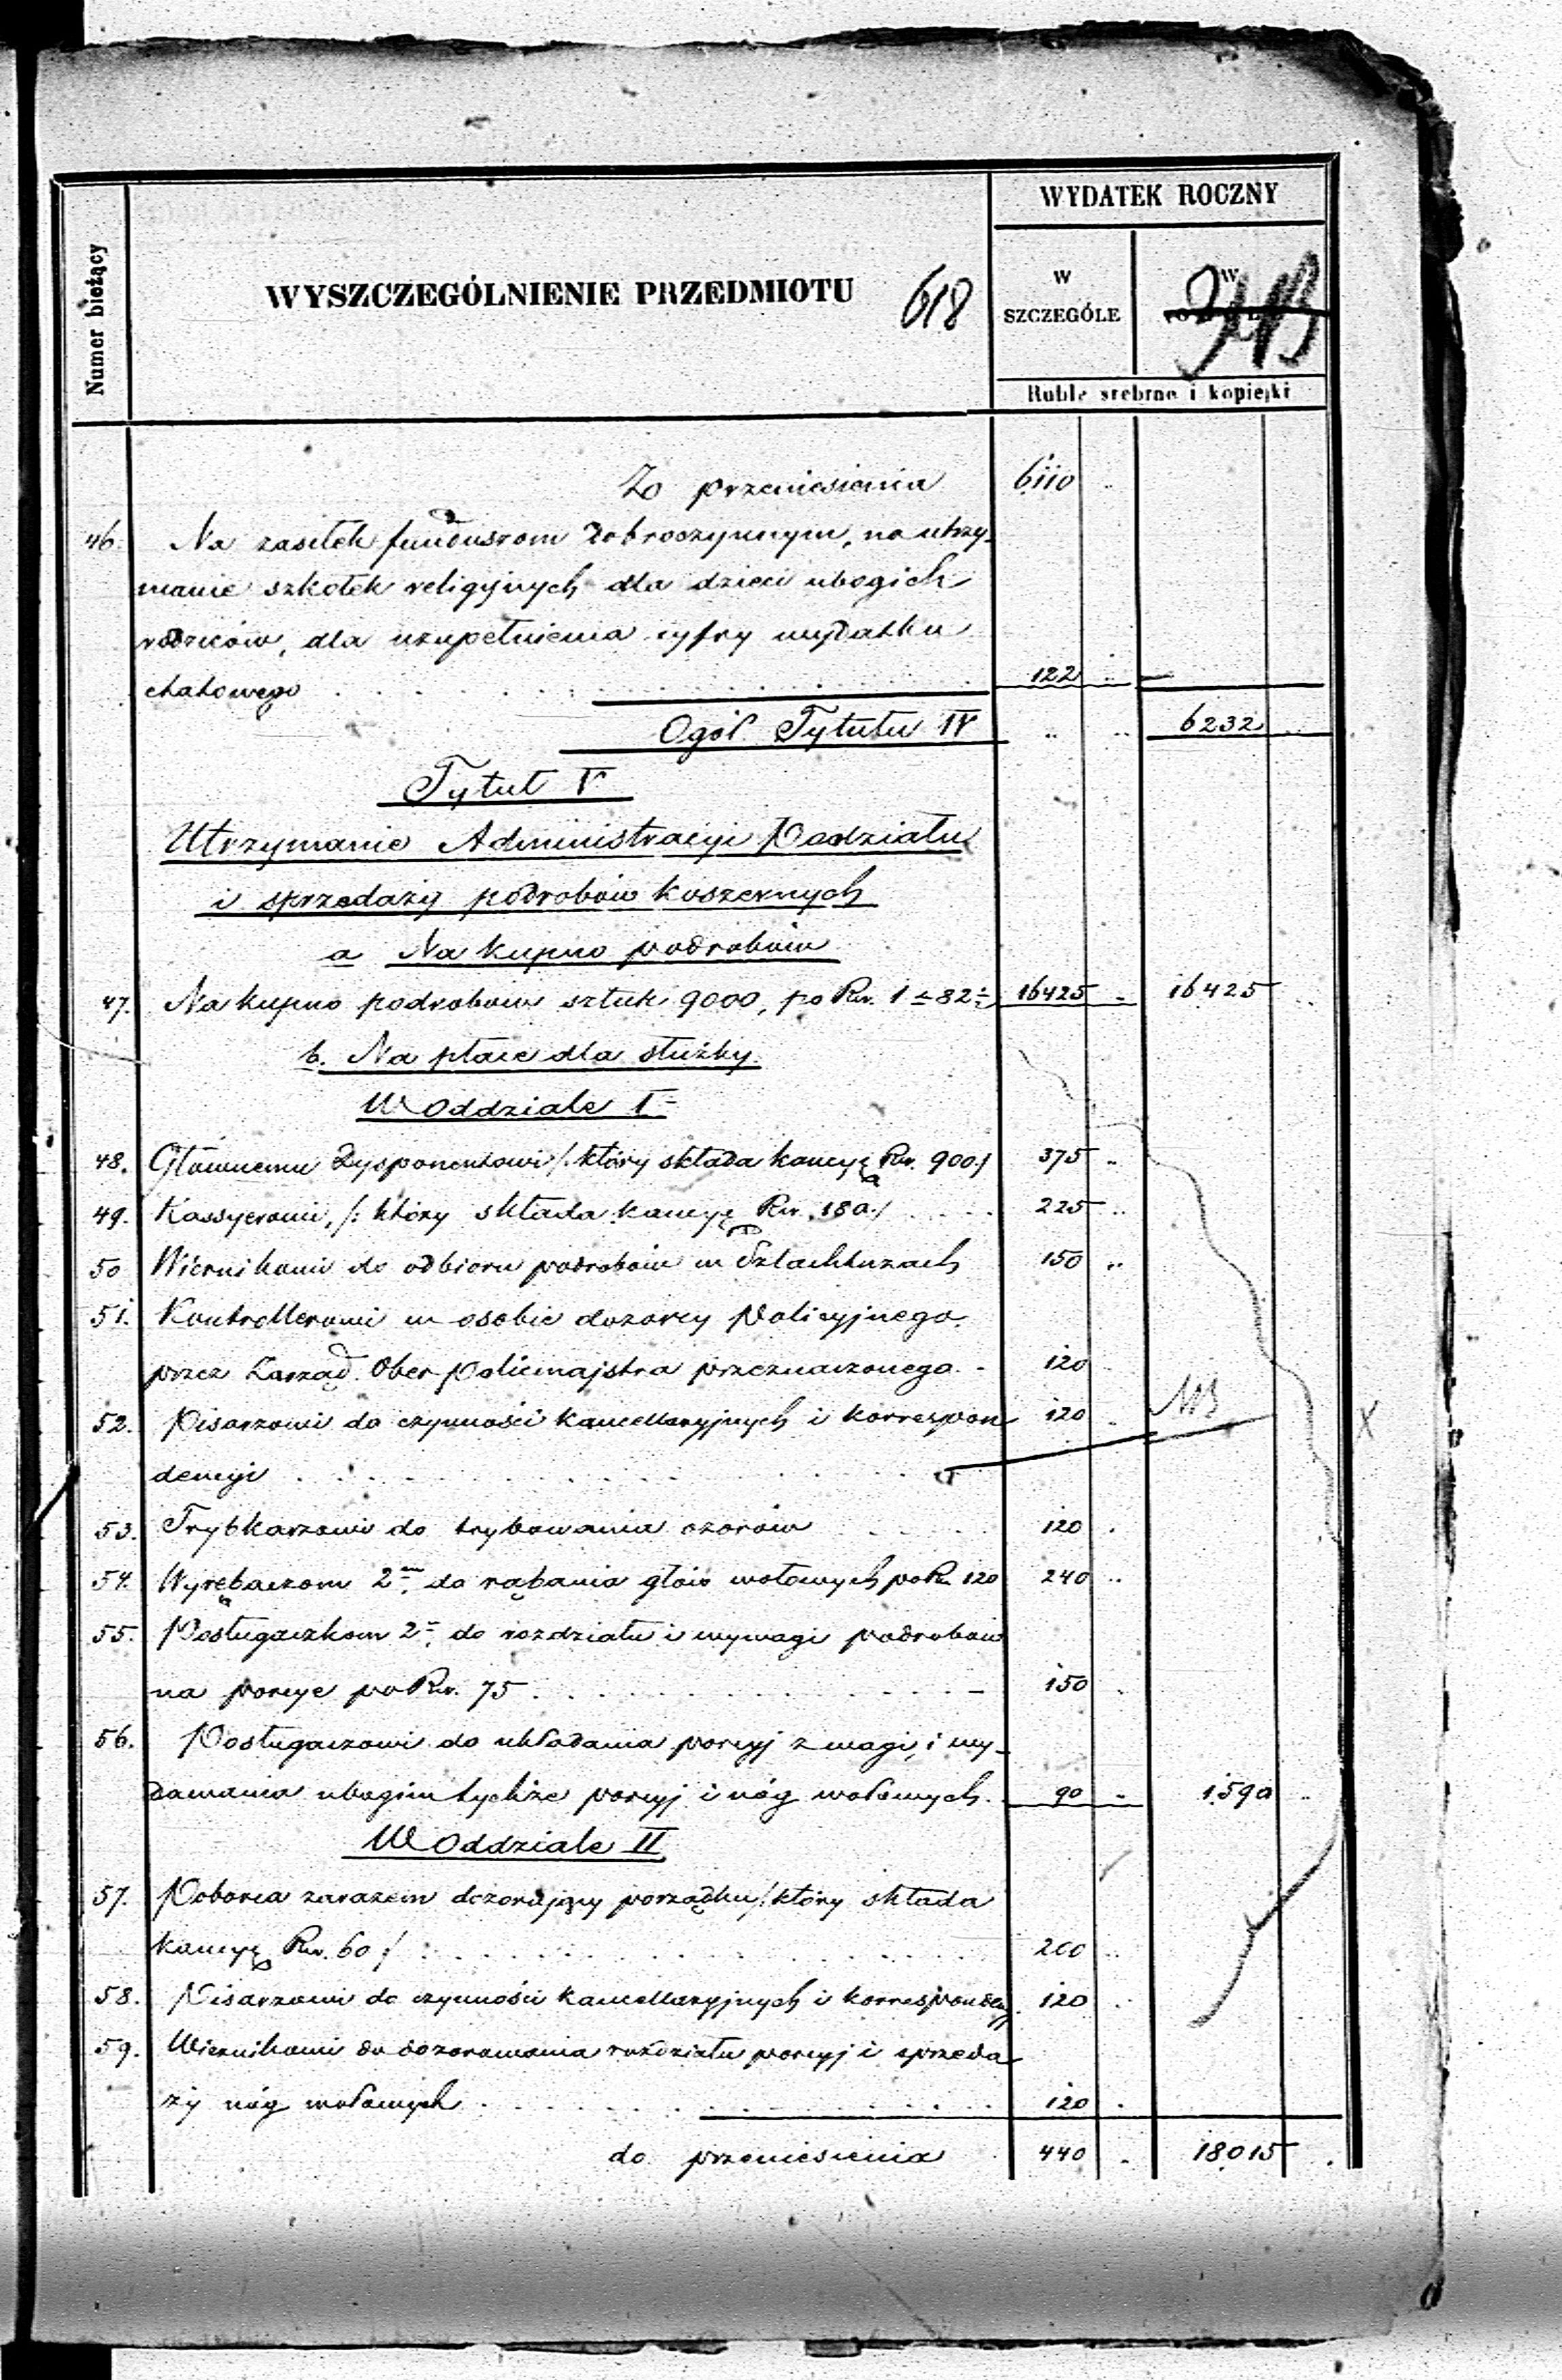 WYDATEK ROCZNY
Numer bieżący
WYSZCZEGÓLNIENIE PRZEDMIOTU 618
W SZCZEGÓLE
W
Ruble srebrne i kopiejki
Z przeniesienia 6110 ..
46. Na zasiłek funduszom dobroczynnym, na utrzy-
manie szkółek religijnych dla dzieci ubogich
rodziców, dla uzupełnienia cyfry wydatku
etatowego . . . . 122 ..
Ogół Tytułu IV .. .. 6232 ..
Tytuł V
Utrzymanie Administracyi Podziału
i sprzedaży podrobów koszernych
a Na kupno podrobów
47. Na kupno podrobów sztuk 9000, po Rsr. 1 = 82½ 16425 .. 16425 ..
b. Na płace dla służby.
W Oddziale I
48. Głównemu Dysponentowi /: który składa kaucyę Rsr. 900 :/ 375 ..
49. Kassyerowi, /: który składa kaucyę Rsr. 180 :/ . . . . 225 ..
50 Wiernikowi do odbioru podrobów w Szlachtuzach 150 ..
51. Kontrollerowi w osobie dozorcy Policyjnego
przez Zarząd Ober Policmajstra przeznaczonego - 120
52. Pisarzowi do czynności kancellaryjnych i korrespon 120 . NB X
dencyi . . . .
53. Trybkarzowi do trybowania ozorów . . . . 120 .
54. Wyrębaczom 2m do rąbania głów wołowych po Rs 120 240 ..
55. Posługaczkom 2m do rozdziału i wywagi podrobów
na porcye po Rsr. 75 . . . . 150 .
56. Posługaczowi do układania porcyj z wagi, i wy-
dawania ubogim tychże porcyj i nóg wołowych. 90 .. 1590 ..
W Oddziale II
57. Poborca zarazem dozorujący porządku /: który składa
kaucyę Rsr. 60 :/ . . . . 200 ..
58. Pisarzowi do czynności kancellaryjnych i korrespondency 120 ..
59. Wiernikowi do dozorowania rozdziału porcyj i sprzeda
ży nóg wołowych . . . . 120 .
do przeniesienia 440 .. 18015 .